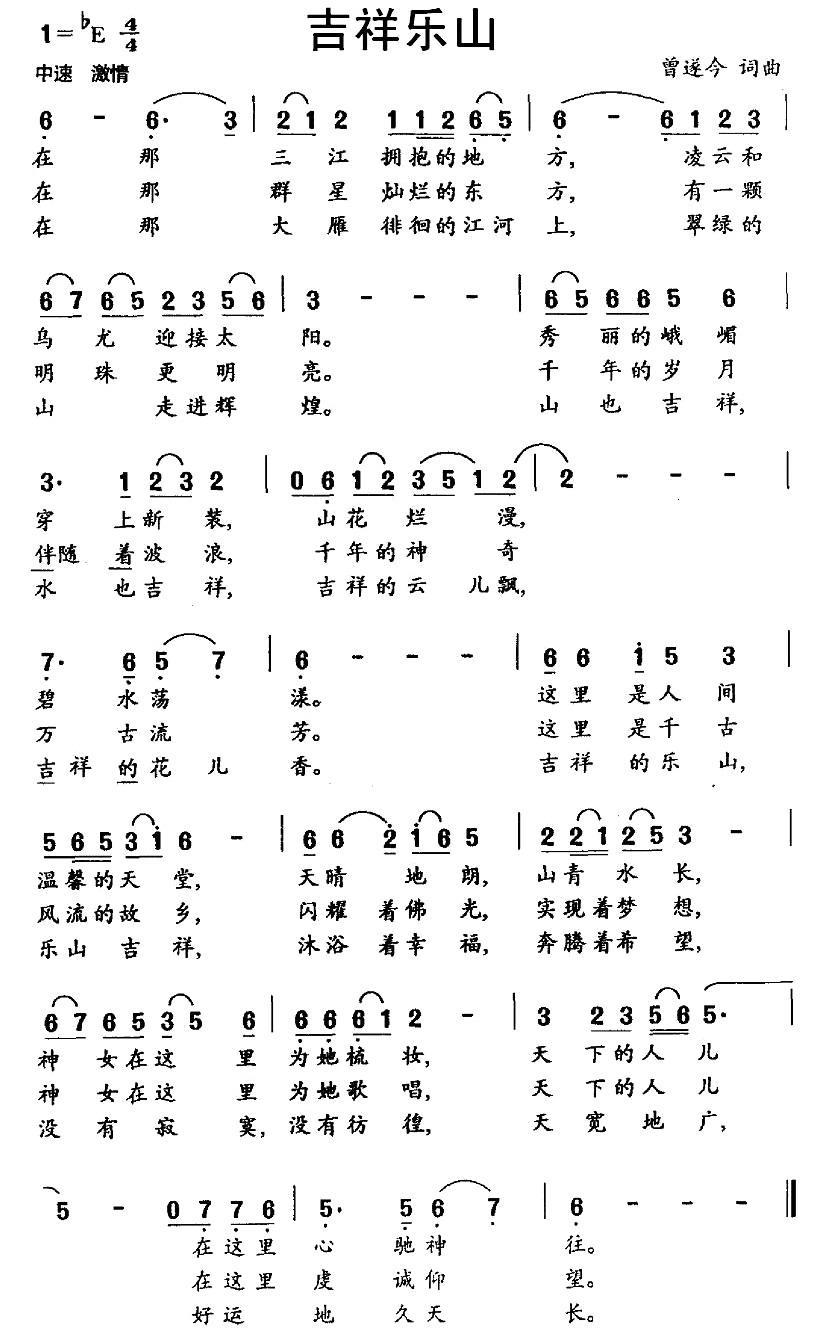 吉祥乐山
1=♭E 4/4
中速 激情
曾遂今 词曲
6 - 6· 3 | 2 1 2 1 1 2 6 5 | 6 - 6 1 2 3 |
在 那 三 江 拥抱的地 方, 凌云和
在 那 群 星 灿烂的东 方, 有一颗
在 那 大 雁 徘徊的江河 上, 翠绿的
6 7 6 5 2 3 5 6 | 3 - - - | 6 5 6 6 5 6 |
乌 尤 迎接太 阳。 秀 丽的峨嵋
明 珠 更 明 亮。 千 年的岁月
山 走进辉 煌。 山 也 吉 祥,
3· 1 2 3 2 | 0 6 1 2 3 5 1 2 | 2 - - - |
穿 上新 装, 山花 烂 漫,
伴随 着波 浪, 千年的神 奇
水 也吉 祥, 吉祥的云 儿飘,
7· 6 5 7 | 6 - - - | 6 6 i 5 3 |
碧 水荡 漾。 这里 是人 间
万 古流 芳。 这里 是千 古
吉祥 的花 儿 香。 吉祥 的乐 山,
5 6 5 3 i 6 - | 6 6 2 i 6 5 | 2 2 1 2 5 3 - |
温馨的天 堂, 天晴 地 朗, 山青 水 长,
风流的故 乡, 闪耀 着佛 光, 实现着梦 想,
乐山 吉 祥, 沐浴 着幸 福, 奔腾着希 望,
6 7 6 5 3 5 6 | 6 6 6 1 2 - | 3 2 3 5 6 5·
神 女在这 里 为她梳 妆, 天 下的人 儿
神 女在这 里 为她歌 唱, 天 下的人 儿
没 有 寂 寞, 没有彷 徨, 天 宽 地 广,
5 - 0 7 7 6 | 5· 5 6 7 | 6 - - - ‖
在这里 心 驰神 往。
在这里 虔 诚仰 望。
好运 地 久天 长。